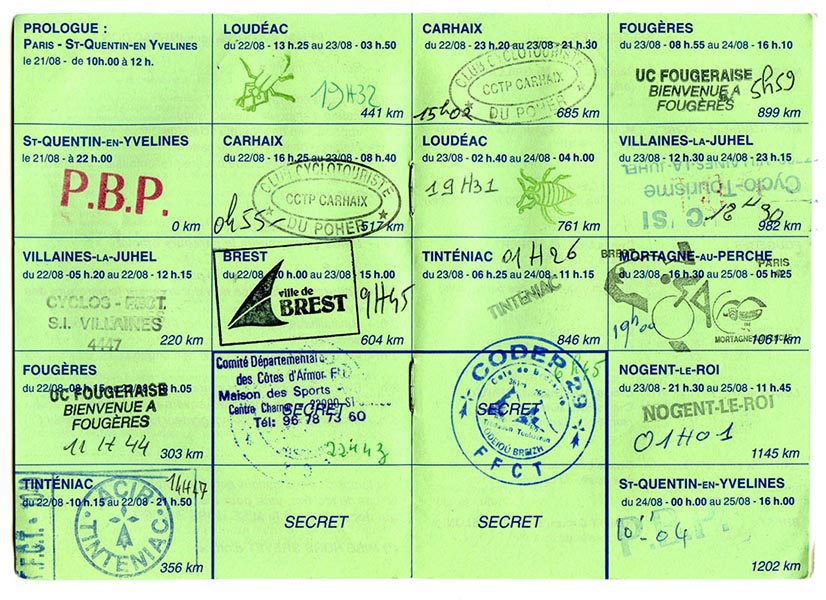 PROLOGUE :
PARIS - ST-QUENTIN EN YVELINES
le 21/08 - de 10h.00 à 12 h.
ST-QUENTIN-EN-YVELINES
le 21/08 - à 22 h.00
P.B.P.
0 km
VILLAINES-LA-JUHEL
du 22/08 - 05 h.20 au 22/08 - 12 h.15
CYCLOS - FFCT.
S.I. VILLAINES
4447
220 km
FOUGÈRES
UC FOUGERAISE
BIENVENUE A
FOUGÈRES
11 H 44
303 km
TINTÉNIAC
14H47
du 22/08 - 10 h.15 au 22/08 - 21 h.50
ACIR
TINTENIAC
356 km
LOUDÉAC
du 22/08 - 13 h.25 au 23/08 - 03 h.50
19H32
441 km
CARHAIX
du 22/08 - 16 h.25 au 23/08 - 08 h.40
CLUB CYCLOTOURISTE
CCTP CARHAIX
DU POHER
0h55
517 km
BREST
du 22/08 - 20 h.00 au 23/08 - 15 h.00
ville de
BREST
9H45
604 km
Comité Départemental
des Côtes d'Armor
Maison des Sports
Tél: 96 78 73 60
SECRET
SECRET
CARHAIX
du 22/08 - 23 h.20 au 23/08 - 21 h.30
CLUB CYCLOTOURISTE
CCTP CARHAIX
DU POHER
15h02
685 km
LOUDÉAC
du 23/08 - 02 h.40 au 24/08 - 04 h.00
19H31
761 km
TINTÉNIAC
01H26
du 23/08 - 06 h.25 au 24/08 - 11 h.15
TINTENIAC
846 km
CODEP 29
FFCT
SECRET
SECRET
FOUGÈRES
du 23/08 - 08 h.55 au 24/08 - 16 h.10
UC FOUGERAISE
BIENVENUE A
FOUGÈRES
5h59
899 km
VILLAINES-LA-JUHEL
du 23/08 - 12 h.30 au 24/08 - 23 h.15
Cyclo-Tourisme
982 km
MORTAGNE-AU-PERCHE
du 23/08 - 16 h.30 au 25/08 - 05 h.25
BREST
PARIS
19h00
1061 km
NOGENT-LE-ROI
du 23/08 - 21 h.30 au 25/08 - 11 h.45
NOGENT-LE-ROI
01H01
1145 km
ST-QUENTIN-EN-YVELINES
du 24/08 - 00 h.00 au 25/08 - 16 h.00
P.B.P.
10 04
1202 km